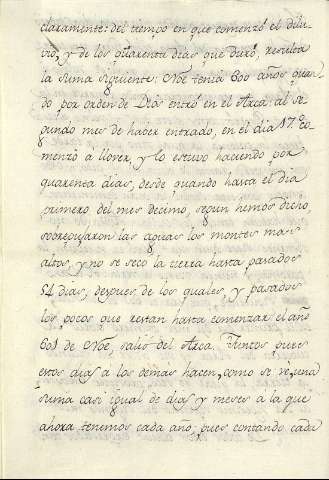 claramente: del tiempo en que comenzó el dilu-
vio, y de los quarenta dias que duró, resulta
la suma siguiente: Noe tenia 600 años quan-
do por orden de Dios entró en el Arca: al se-
gundo mes de haber entrado, en el dia 17. co-
menzó á llover, y lo estuvo haciendo por
quarenta dias, desde quando hasta el dia
primero del mes decimo, segun hemos dicho,
sobrepujaron las aguas los montes mas
altos, y no se secó la tierra hasta pasados
54 dias, despues de los quales, y pasados
los pocos que restan hasta comenzar el año
601 de Noe, salió del Arca. Juntos pues
estos dias a los demas hacen, como se vé, una
suma casi igual de dias y meses a la que
ahora tenemos cada año, pues contando cada